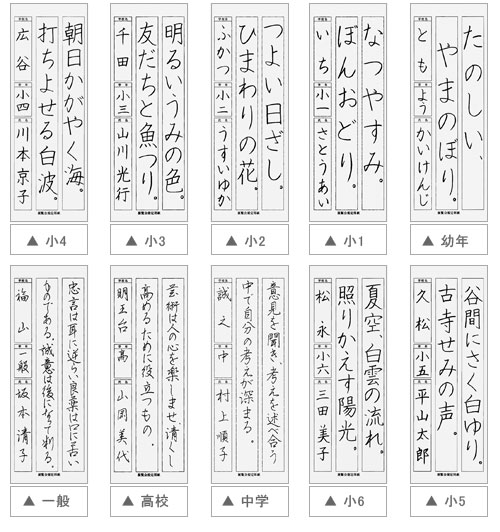 たのしい、
やまのぼり。
とも よう かいけんじ
▲ 幼年
なつやすみ。
ぼんおどり。
いち 小一 さとうあい
▲ 小1
つよい日ざし。
ひまわりの花。
ふかつ 小二 うすいゆか
▲ 小2
明るいうみの色。
友だちと魚つり。
千田 小三 山川光行
▲ 小3
朝日かがやく海。
打ちよせる白波。
広谷 小四 川本京子
▲ 小4
谷間にさく白ゆり。
古寺せみの声。
久松 小五 平山太郎
▲ 小5
夏空、白雲の流れ。
照りかえす陽光。
松永 小六 三田美子
▲ 小6
意見を聞き、考えを述べ合う
中で自分の考えが深まる。
誠之 中 村上順子
▲ 中学
芸術は人の心を楽しませ、清くし
高めるために役立つもの。
明王台 高 山岡美代
▲ 高校
忠言は耳に逆らい、良薬は口に苦い
ものである。誠意は後になって判る。
福山 一般 坂本清子
▲ 一般